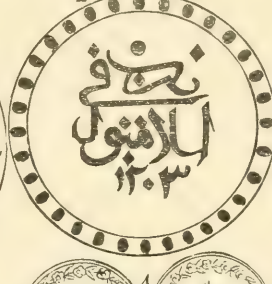 ضرب
في
اسلامبول
١٢٠٣